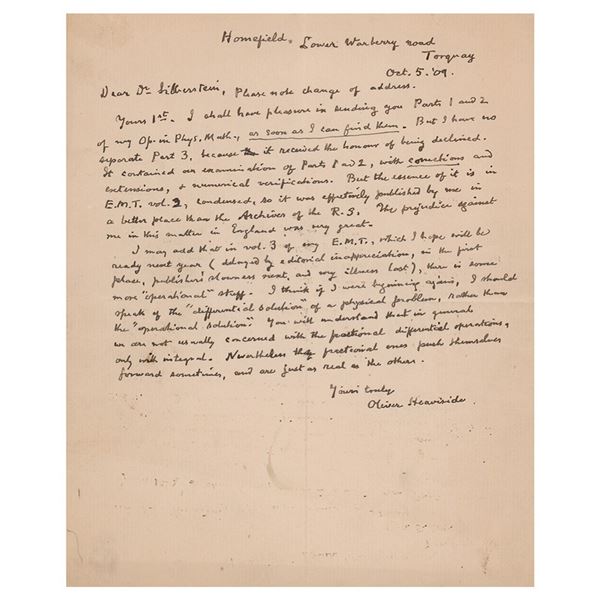 Homefield, Lower Warberry road
Torquay
Oct. 5. '09.
Dear Dr Silberstein, Please note change of address.
Yours 1st. I shall have pleasure in sending you Parts 1 and 2
of my Op. in Phys. Math., as soon as I can find them. But I have no
separate Part 3, because it received the honour of being declined.
It contained an examination of Parts 1 and 2, with corrections and
extensions, & numerical verifications. But the essence of it is in
E.M.T. vol. 2, condensed, so it was effectively published by me in
a better place than the Archives of the R.S. The prejudice against
me in this matter in England was very great.
I may add that in vol. 3 of my E.M.T., which I hope will be
ready next year (delayed by editorial inappreciation, in the first
place, publishers' slowness next, and my illness last), there is some
more "operational" stuff. I think if I were beginning again, I should
speak of the "differential solution" of a physical problem, rather than
the "operational solution". You will understand that in general
we are not usually concerned with the fractional differential operations,
only with integral. Nevertheless the fractional ones push themselves
forward sometimes, and are just as real as the others.
Yours truly
Oliver Heaviside.